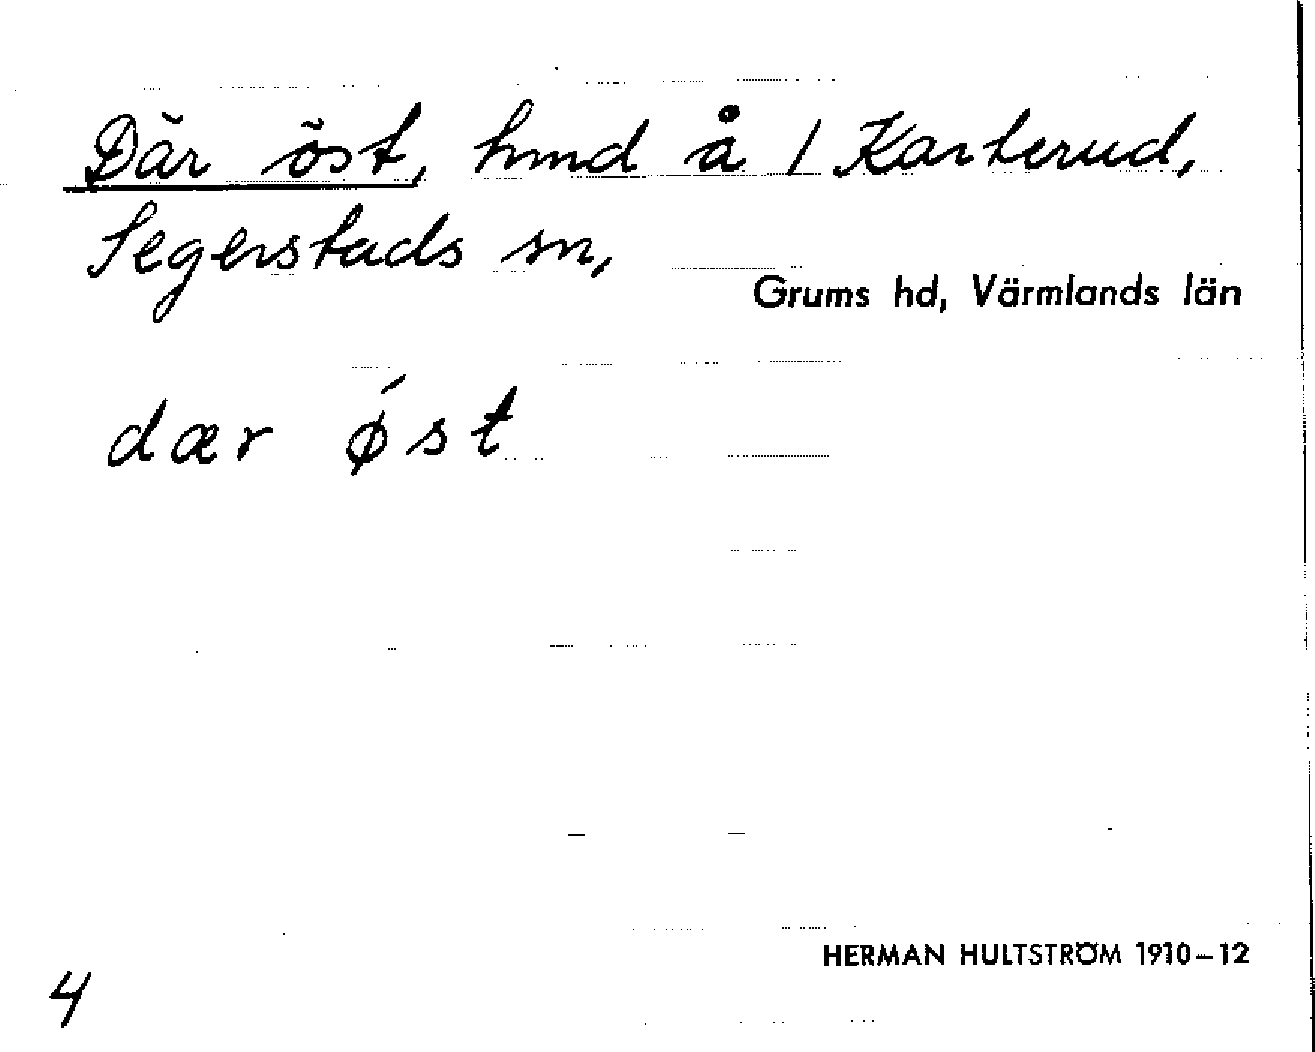 Där öst, hmd å 1 Karterud,
Segerstads sn,
Grums hd, Värmlands län
dær ǿst
HERMAN HULTSTRÖM 1910–12
4